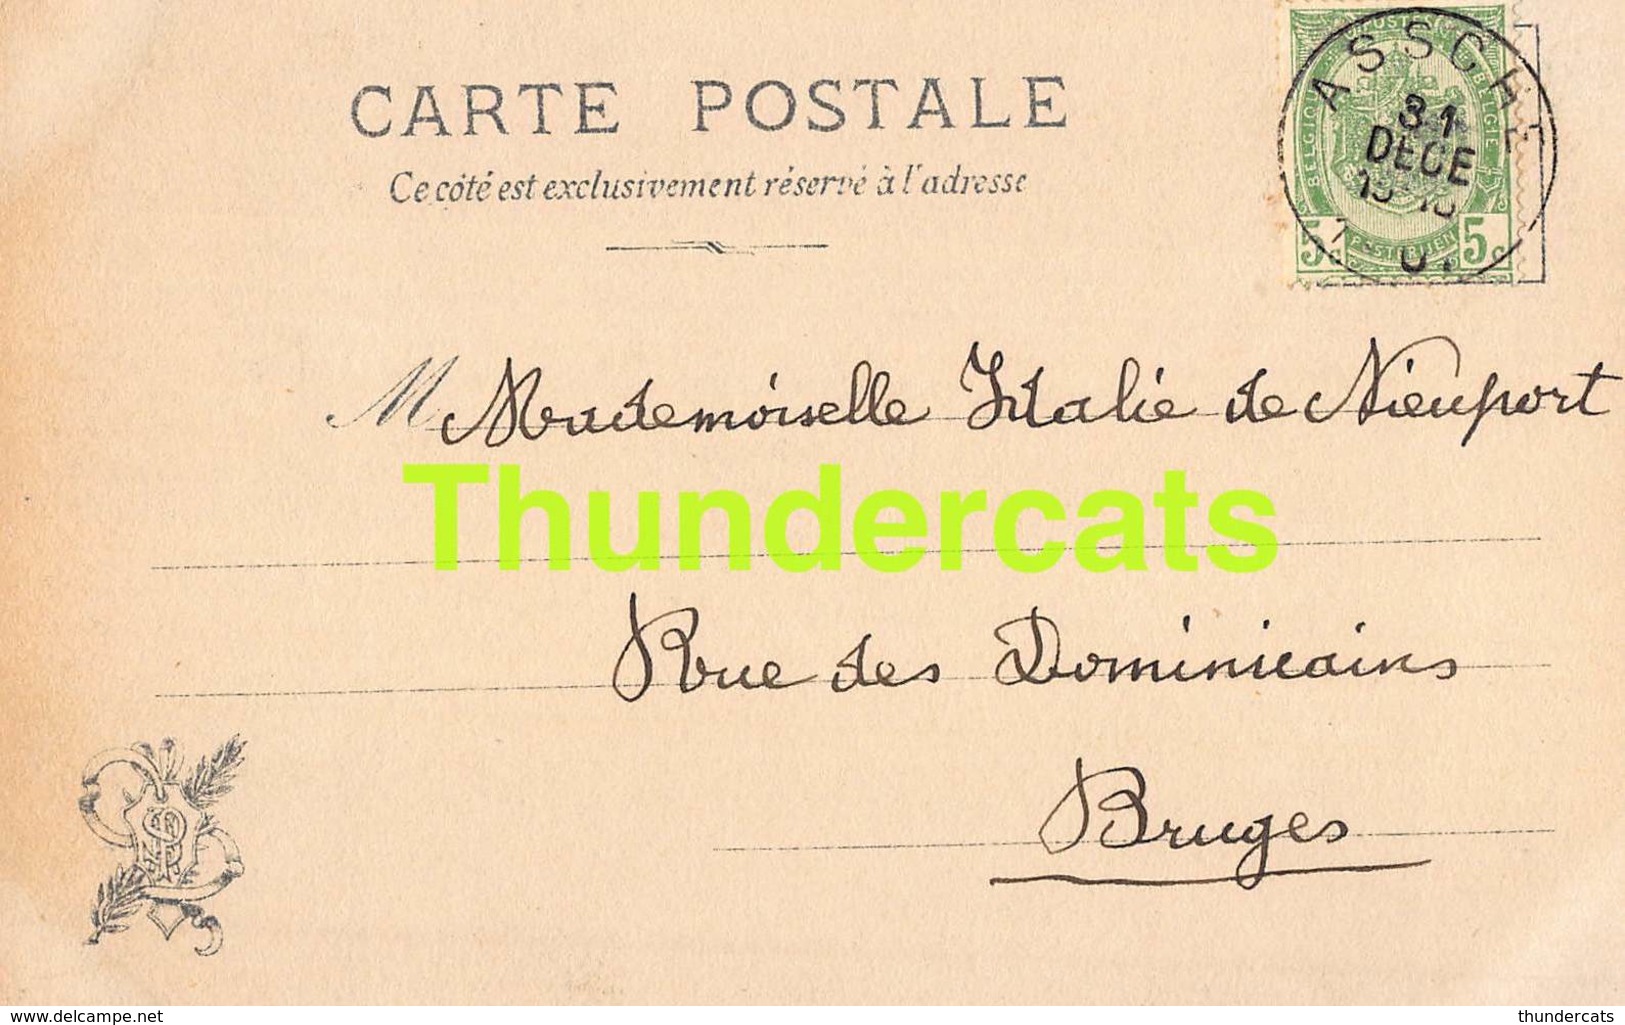 CARTE POSTALE
Ce côté est exclusivement réservé à l'adresse
ASSCHE
31
DECE
BELGIQUE
BELGIE
POSTERIJEN
5c
5c
M Mademoiselle Idalie de Nieuport
Thundercats
Rue des Dominicains
Bruges
www.delcampe.net
thundercats